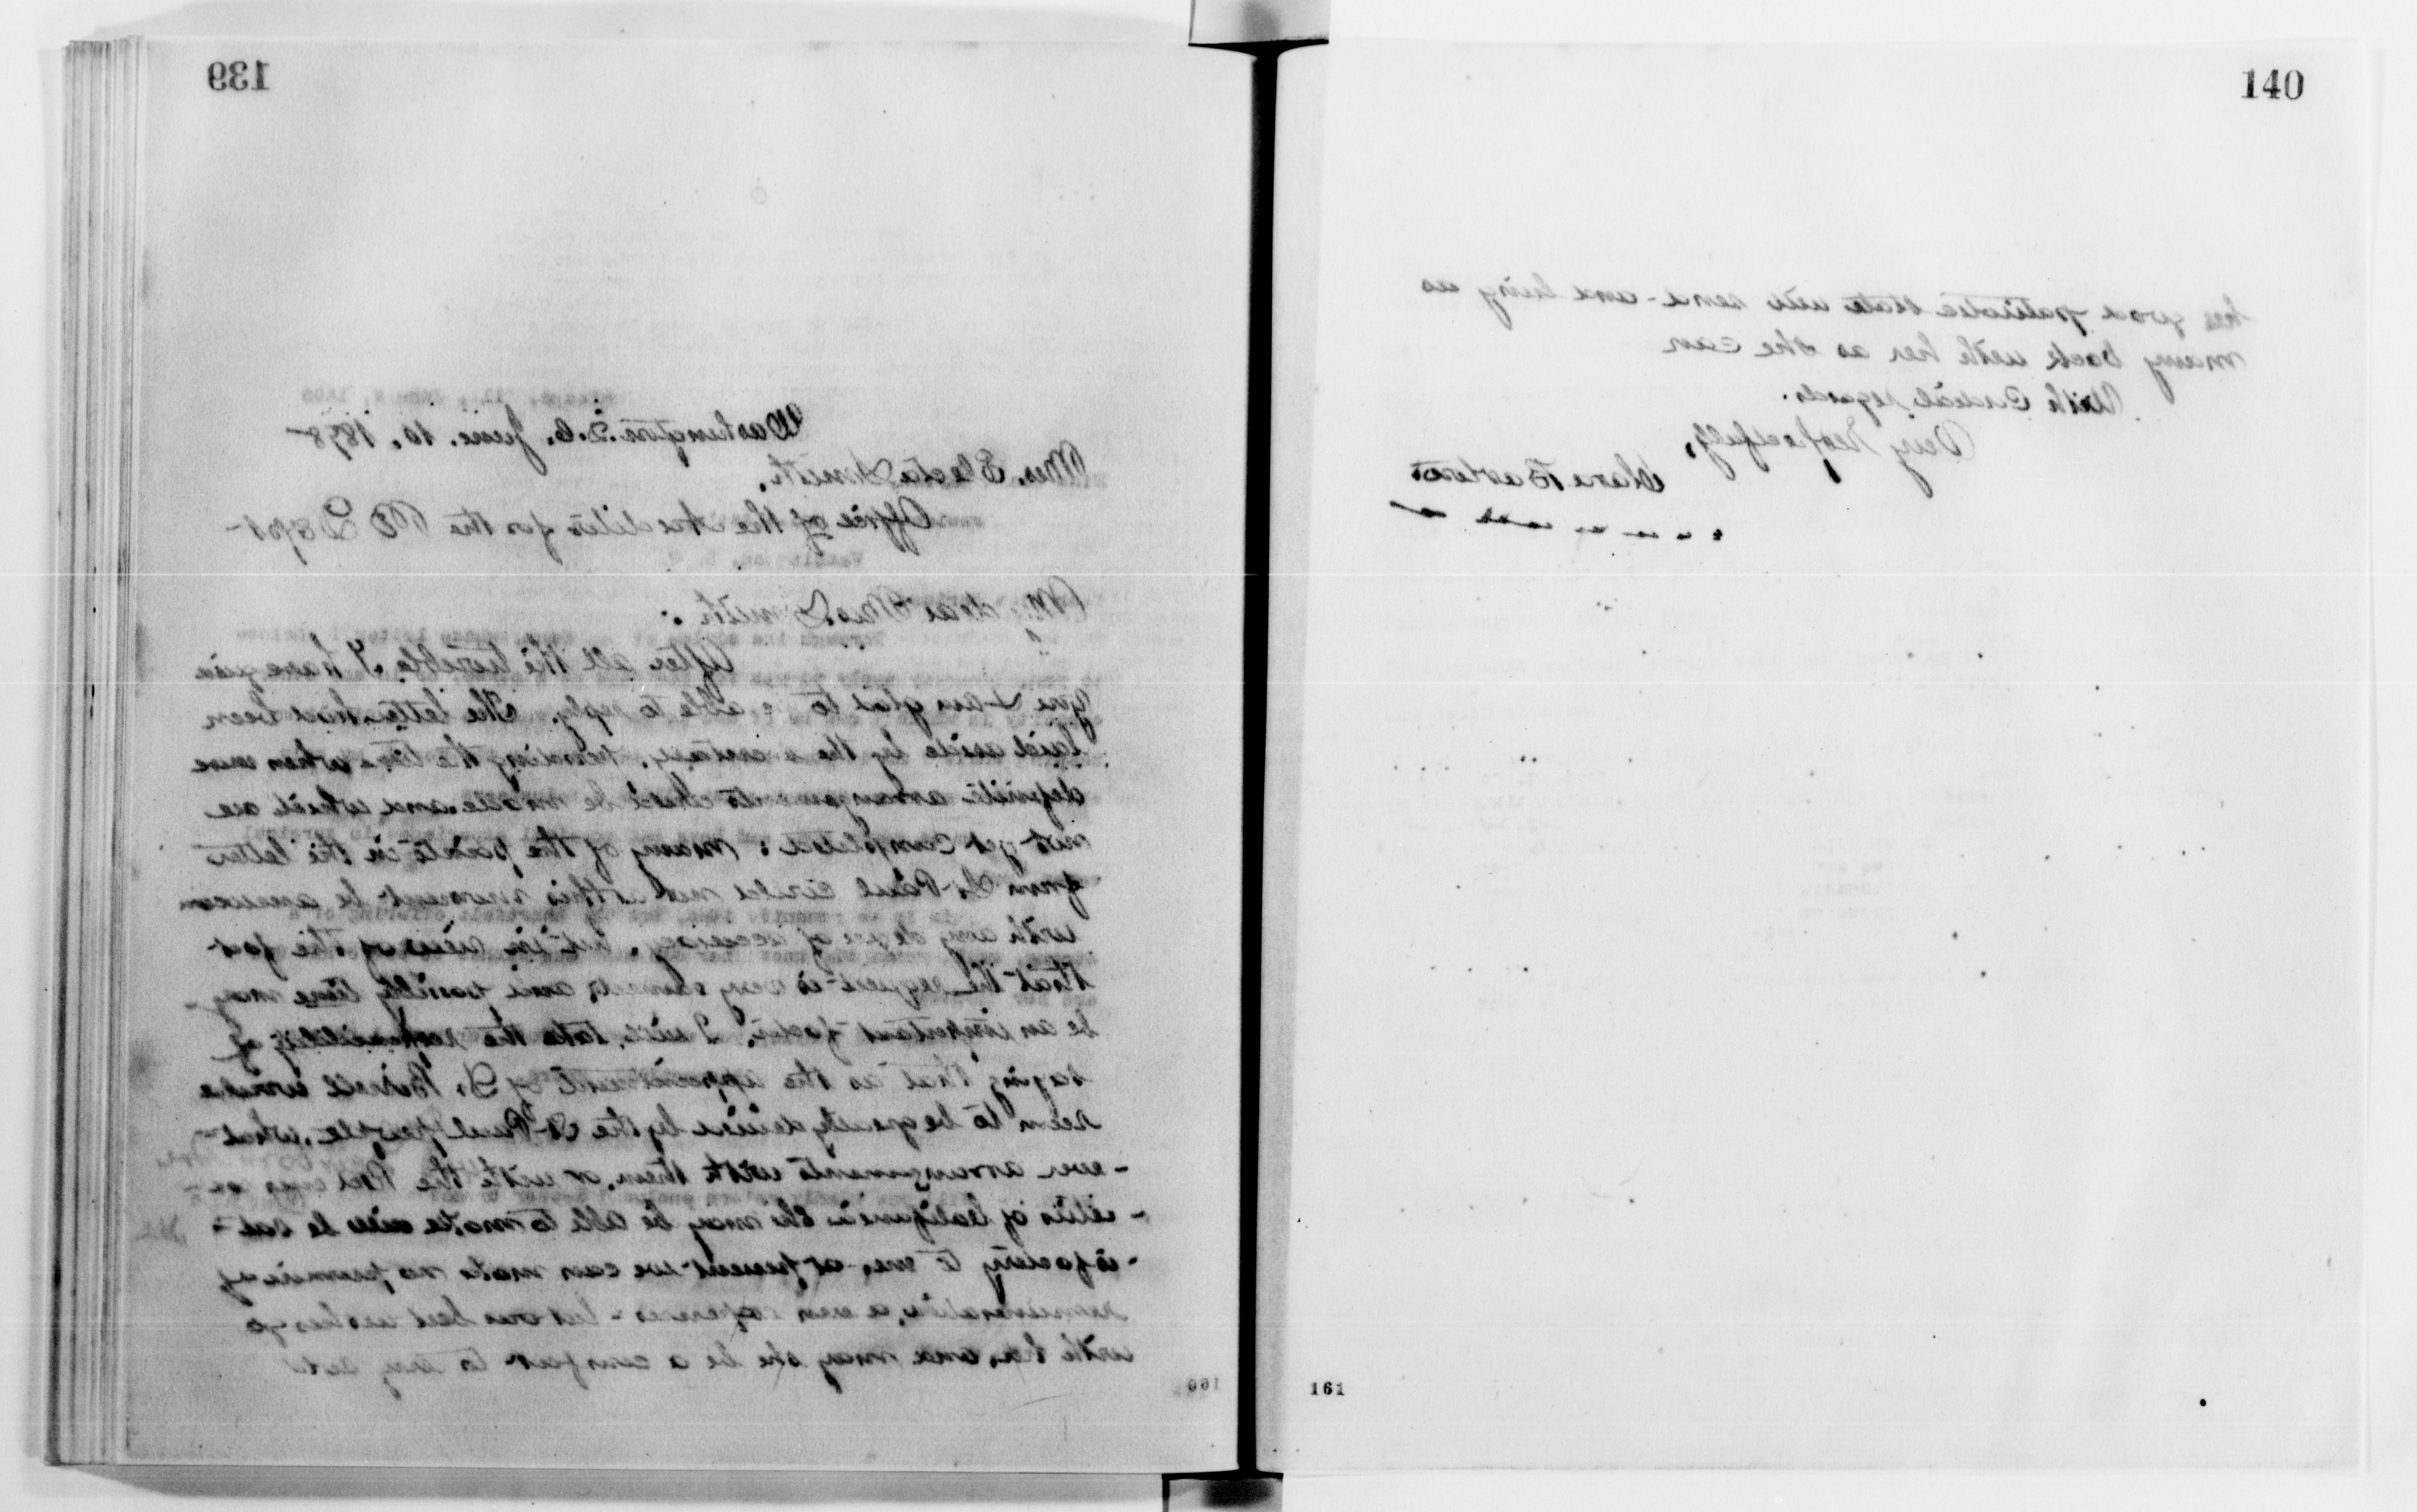 139
Washington. D.C. June. 10. 1898-
Mrs. Electa Smith.
Office of the Auditor for the P O Dept-
My dear Mrs Smith:
After all the trouble I have given
you I am glad to be able to reply. The letter had been
laid aside by the secretary, pending the time when more
definite arrangements should be made and which are
not yet completed: many of the points in the letter
from St. Paul could not at this moment be answered
with any degree of accuracy, but in view of the fact
that the request is very earnest, and possibly time may
be an important factor, I will take the responsibility of
saying that as the appointment of would
seem to be greatly desired by the St Paul people, what-
-ever arrangements with them, or with the Red Cross soc-
-ieties of California she may be able to make will be sat-
-isfactory to me, at present we can make no promise of
remuneration, or even expenses - but our best wishes go
with her, and may she be a comfort to any
160
140
her good patriotic state will send - and bring as
many back with her as she can
With Cordial regards.
Very respectfully,
Clara Barton
161